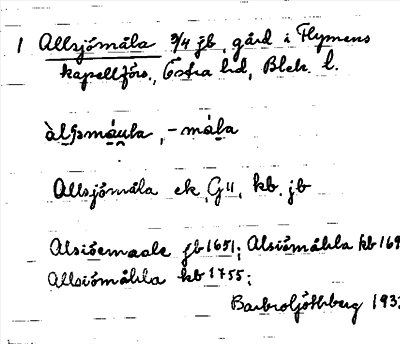 1 Allsjömåla 3/4 jb, gård i Flymens
kapellförs., Östra hd, Blek. l.
àlſsmáula, -måla
Allsjömåla ek, G11, kb. jb
Alsiöemaale jb 1651; Alsiömåhla kb 169
Allsiömåhla kb 1755;
Barbro Ljöthberg 193